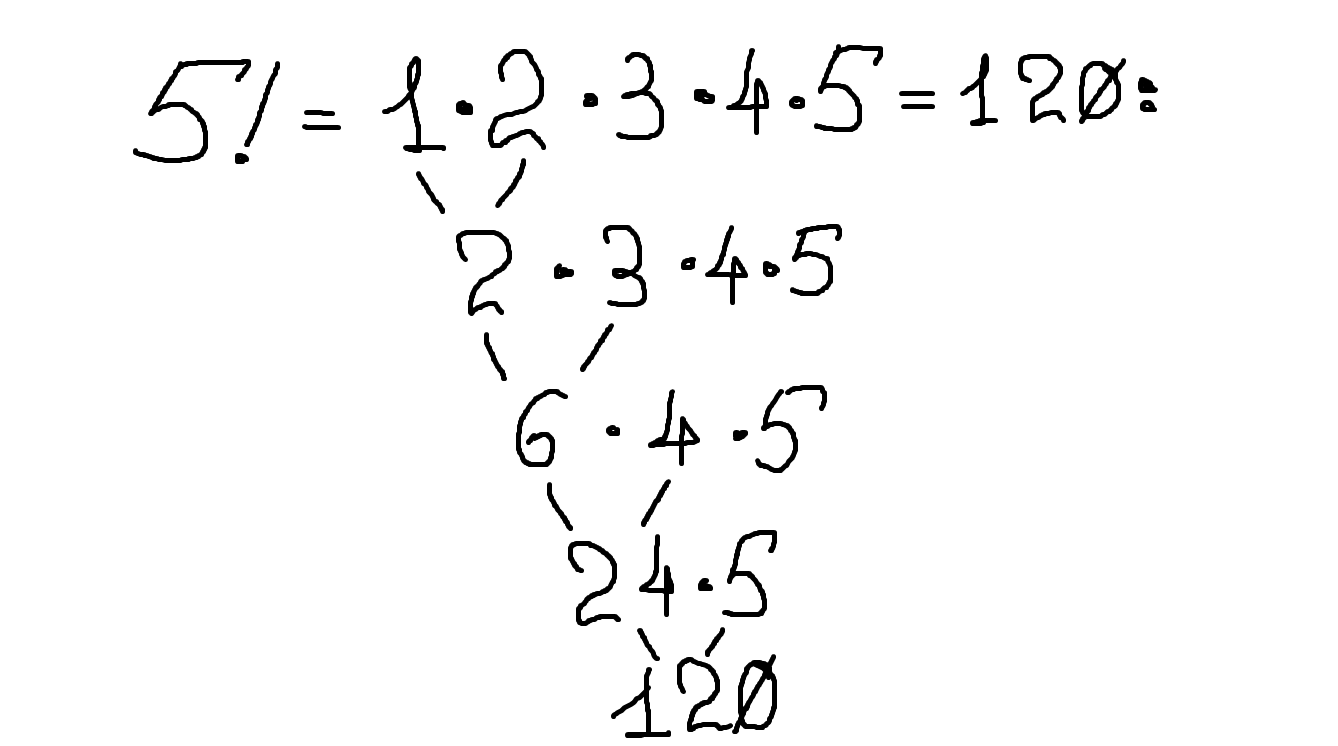 5! = 1·2·3·4·5 = 120:
2·3·4·5
6·4·5
24·5
120